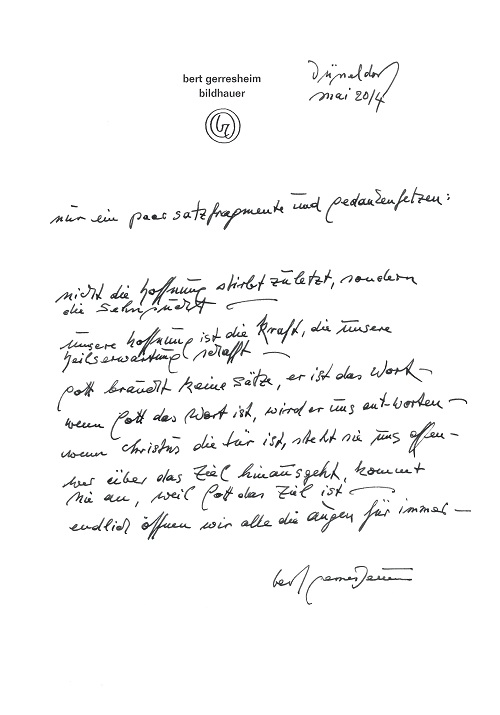 bert gerresheim
bildhauer
Düsseldorf
mai 2014
nur ein paar satzfragmente und gedankenfetzen:
nicht die hoffnung stirbt zuletzt, sondern
die Sehnsucht —
unsere hoffnung ist die kraft, die unsere
heilserwartung schafft —
Gott braucht keine Sätze, er ist das Wort —
wenn Gott das Wort ist, wird er uns ant-worten —
wenn christus die tür ist, steht sie uns offen —
wer über das Ziel hinausgeht, kommt
nie an, weil Gott das Ziel ist —
endlich öffnen wir alle die augen für immer —
bert gerresheim